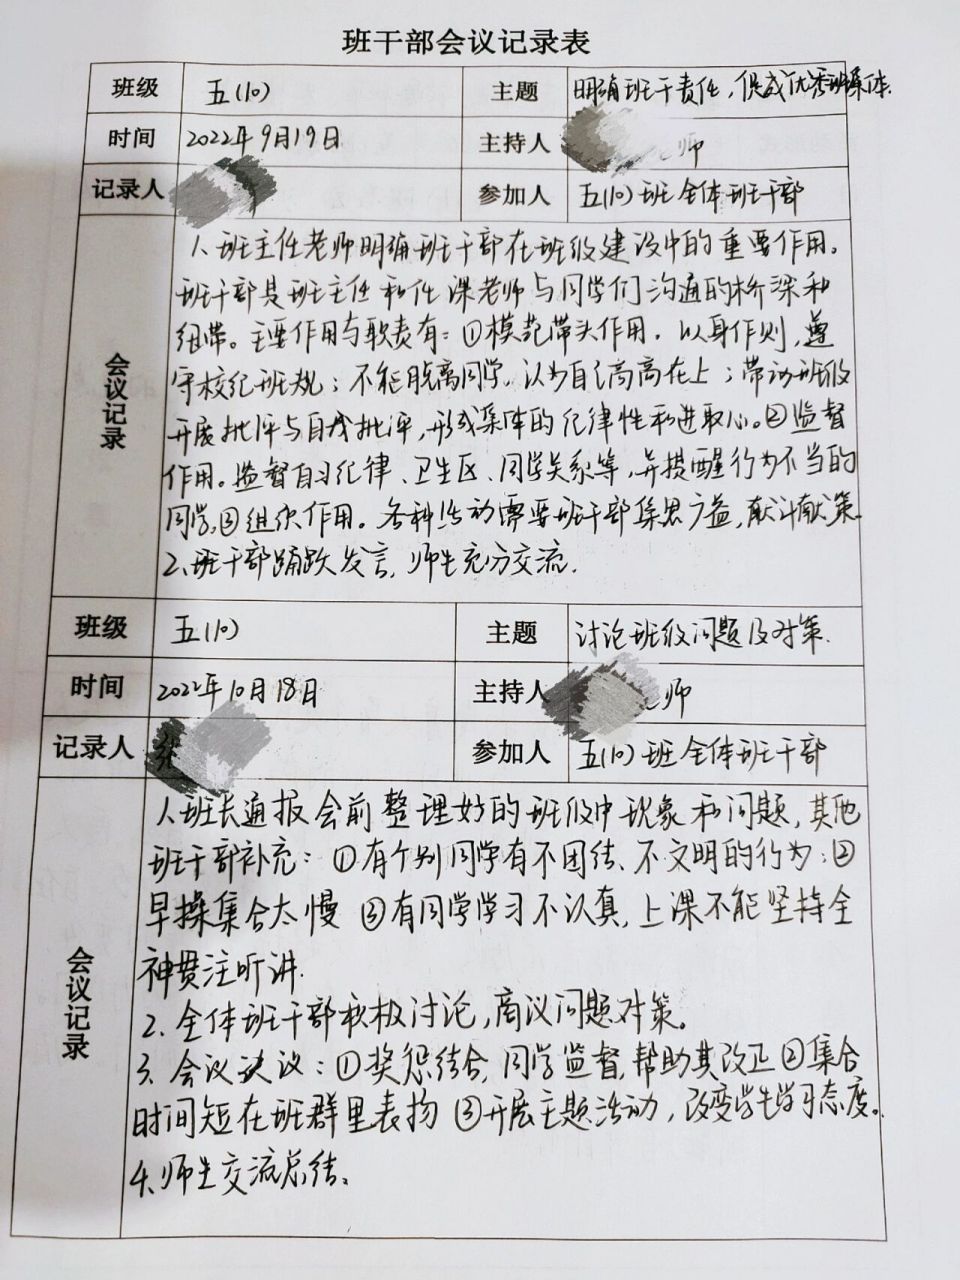 班干部会议记录表
班级 五(10) 主题 明确班干责任，促成优秀班集体.
时间 2022年9月19日 主持人 师
记录人 参加人 五(10)班全体班干部
会议记录
1、班主任老师明确班干部在班级建设中的重要作用。
班干部是班主任和任课老师与同学们沟通的桥梁和
纽带。主要作用与职责有：①模范带头作用．以身作则，遵
守校纪班规；不能脱离同学，认为自己高高在上；带动班级
开展批评与自我批评，形成集体的纪律性和进取心。②监督
作用。监督自习纪律、卫生区、同学关系等，并提醒行为不当的
同学③组织作用。各种活动需要班干部集思广益，献计献策.
2、班干部踊跃发言，师生充分交流.
班级 五(10) 主题 讨论班级问题及对策.
时间 2022年10月18日 主持人 师
记录人 参加人 五(10)班全体班干部
会议记录
1、班长通报会前整理好的班级中现象和问题，其他
班干部补充：①有个别同学有不团结、不文明的行为；②
早操集合太慢 ③有同学学习不认真，上课不能坚持全
神贯注听讲.
2．全体班干部积极讨论，商议问题对策。
3．会议决议：①奖惩结合，同学监督，帮助其改正 ②集合
时间短在班群里表扬 ③开展主题活动，改变学生学习态度。
4、师生交流总结。